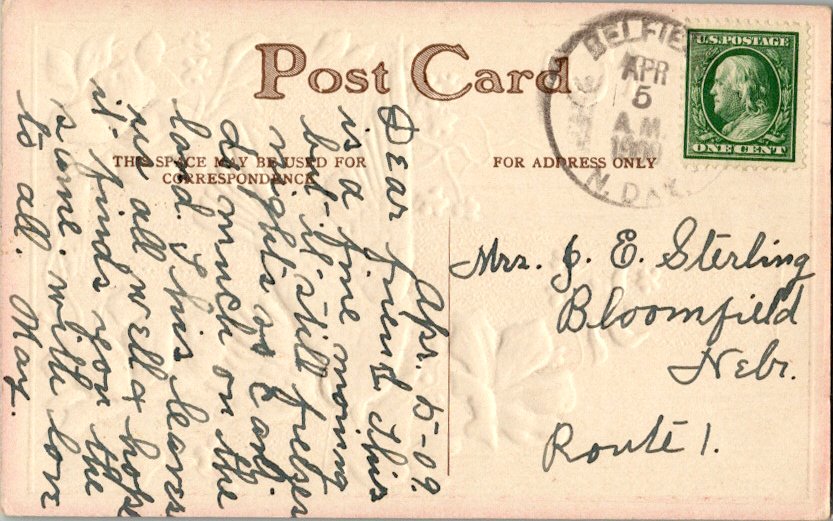 Post Card
THE SPACE MAY BE USED FOR
CORRESPONDENCE
FOR ADDRESS ONLY
BELFIE
APR
5
A.M.
1909
N. DAK.
U.S. POSTAGE
ONE CENT
Apr. 5-09.
Dear friend This
is a fine moning
but it still freezes
nights so Earl
d much on the
land. This leaves
us all well & hope
it finds you the
same. with love
to all. May.
Mrs. J. E. Sterling
Bloomfield
Nebr.
Route 1.